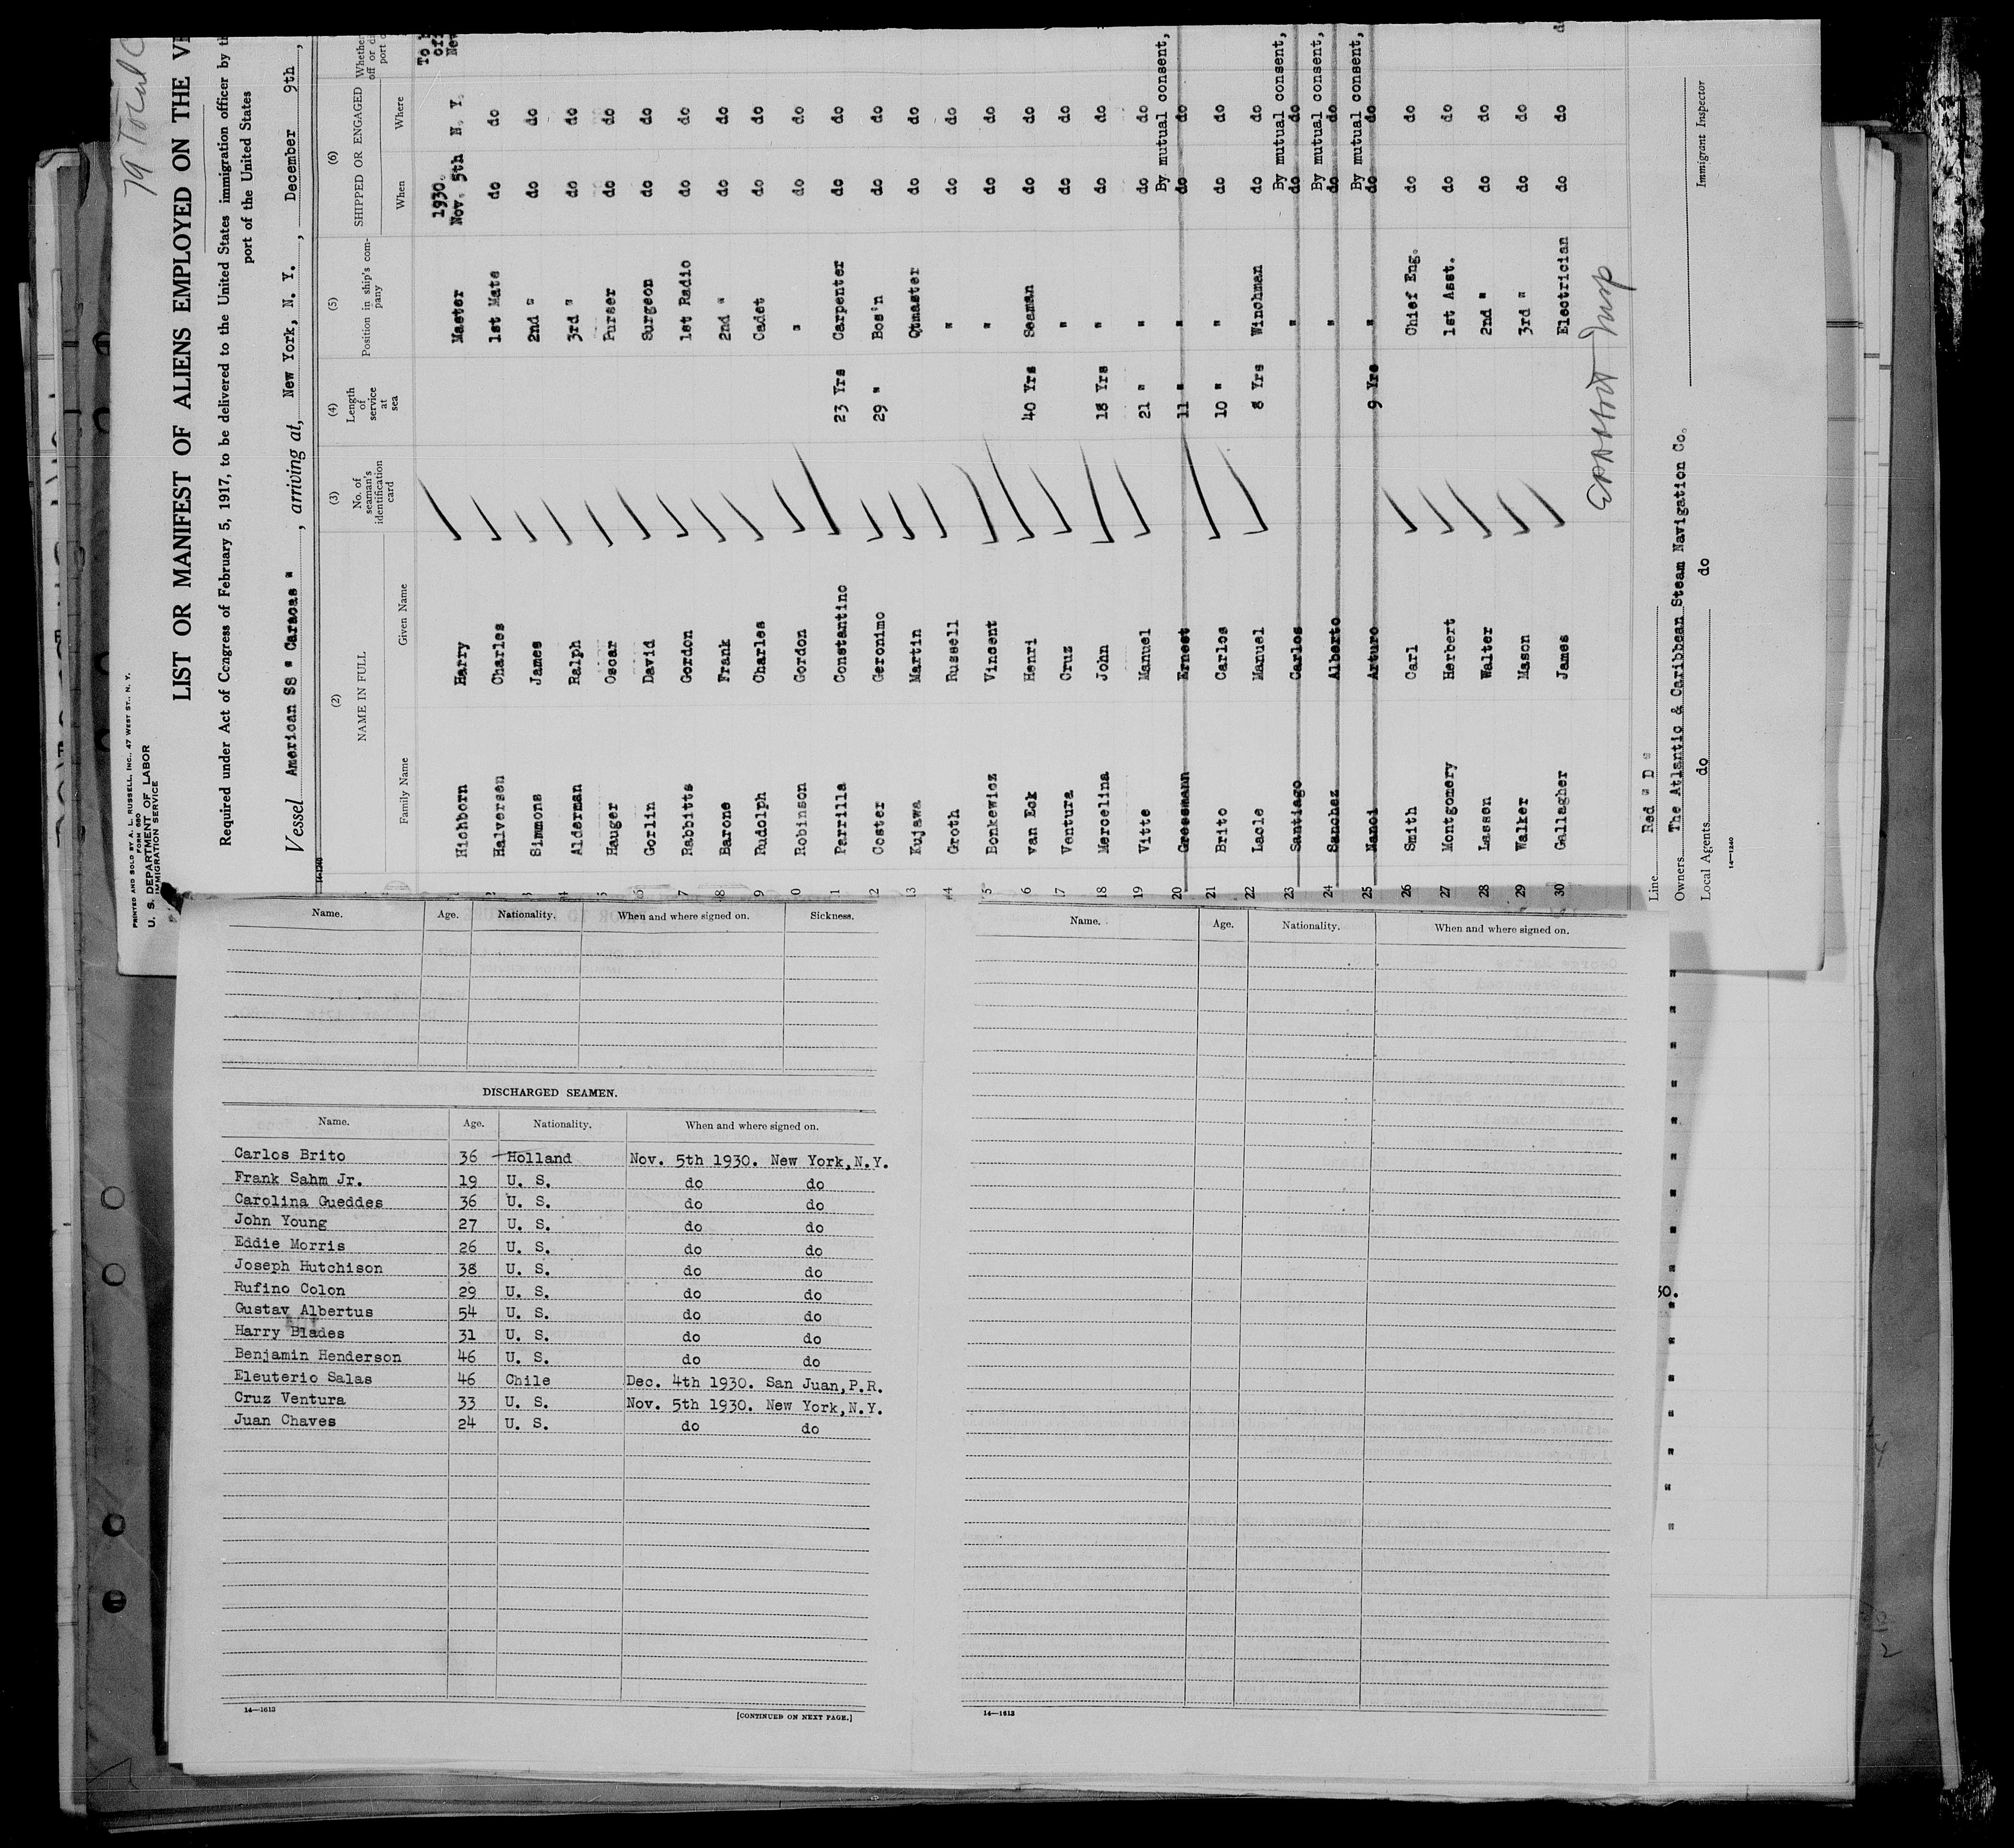 PRINTED AND SOLD BY A. L. RUSSELL, INC., 47 WEST ST., N. Y.
FORM 680
U. S. DEPARTMENT OF LABOR
IMMIGRATION SERVICE
79 Total
LIST OR MANIFEST OF ALIENS EMPLOYED ON THE
Required under Act of Congress of February 5, 1917, to be delivered to the United States immigration officer by
port of the United States
Vessel American SS " Caracas " , arriving at, New York, N. Y. , December 9th ,
(2) (3) (4) (5) (6)
NAME IN FULL No. of seaman's identification card Length of service at sea Position in ship's company SHIPPED OR ENGAGED Whether
Family Name Given Name When Where
1930.
Hichborn Harry Master Nov. 5th N. Y.
Halversen Charles 1st Mate do do
Simmons James 2nd " do do
Alderman Ralph 3rd " do do
Hauger Oscar Purser do do
Gorlin David Surgeon do do
7 Rabbitts Gordon 1st Radio do do
8 Barone Frank 2nd " do do
9 Rudolph Charles Cadet do do
0 Robinson Gordon " do do
1 Parrilla Constantino 23 Yrs Carpenter do do
12 Coster Geronimo 29 " Bos'n do do
13 Kujawa Martin Qtmaster do do
14 Groth Russell " do do
5 Bonkewicz Vincent " do do
6 van Eck Henri 40 Yrs Seaman do do
17 Ventura Cruz " do do
18 Mercelina John 18 Yrs " do do
19 Vitte Manuel 21 " " do do
By mutual consent,
20 Greesmann Ernest 11 " " do do
21 Brito Carlos 10 " " do do
22 Lacle Manuel 8 Yrs Winchman do do
By mutual consent,
23 Santiago Carlos " do do
By mutual consent,
24 Sanchez Alberto " do do
By mutual consent,
25 Nanci Arturo 9 Yrs " do do
26 Smith Carl Chief Eng. do do
27 Montgomery Herbert 1st Asst. do do
28 Lassen Walter 2nd " do do
29 Walker Mason 3rd " do do
30 Gallagher James Electrician do do
Line Red " D "
Owners The Atlantic & Caribbean Steam Navigation Co.
Local Agents do do
Immigrant Inspector
14—1240
Name. Age. Nationality. When and where signed on. Sickness.
DISCHARGED SEAMEN.
Name. Age. Nationality. When and where signed on.
Carlos Brito 36 Holland Nov. 5th 1930. New York,N.Y.
Frank Sahm Jr. 19 U. S. do do
Carolina Gueddes 36 U. S. do do
John Young 27 U. S. do do
Eddie Morris 26 U. S. do do
Joseph Hutchison 38 U. S. do do
Rufino Colon 29 U. S. do do
Gustav Albertus 54 U. S. do do
Harry Blades 31 U. S. do do
Benjamin Henderson 46 U. S. do do
Eleuterio Salas 46 Chile Dec. 4th 1930. San Juan,P.R.
Cruz Ventura 33 U. S. Nov. 5th 1930. New York,N.Y.
Juan Chaves 24 U. S. do do
14—1613
[CONTINUED ON NEXT PAGE.]
Name. Age. Nationality. When and where signed on.
14—1613